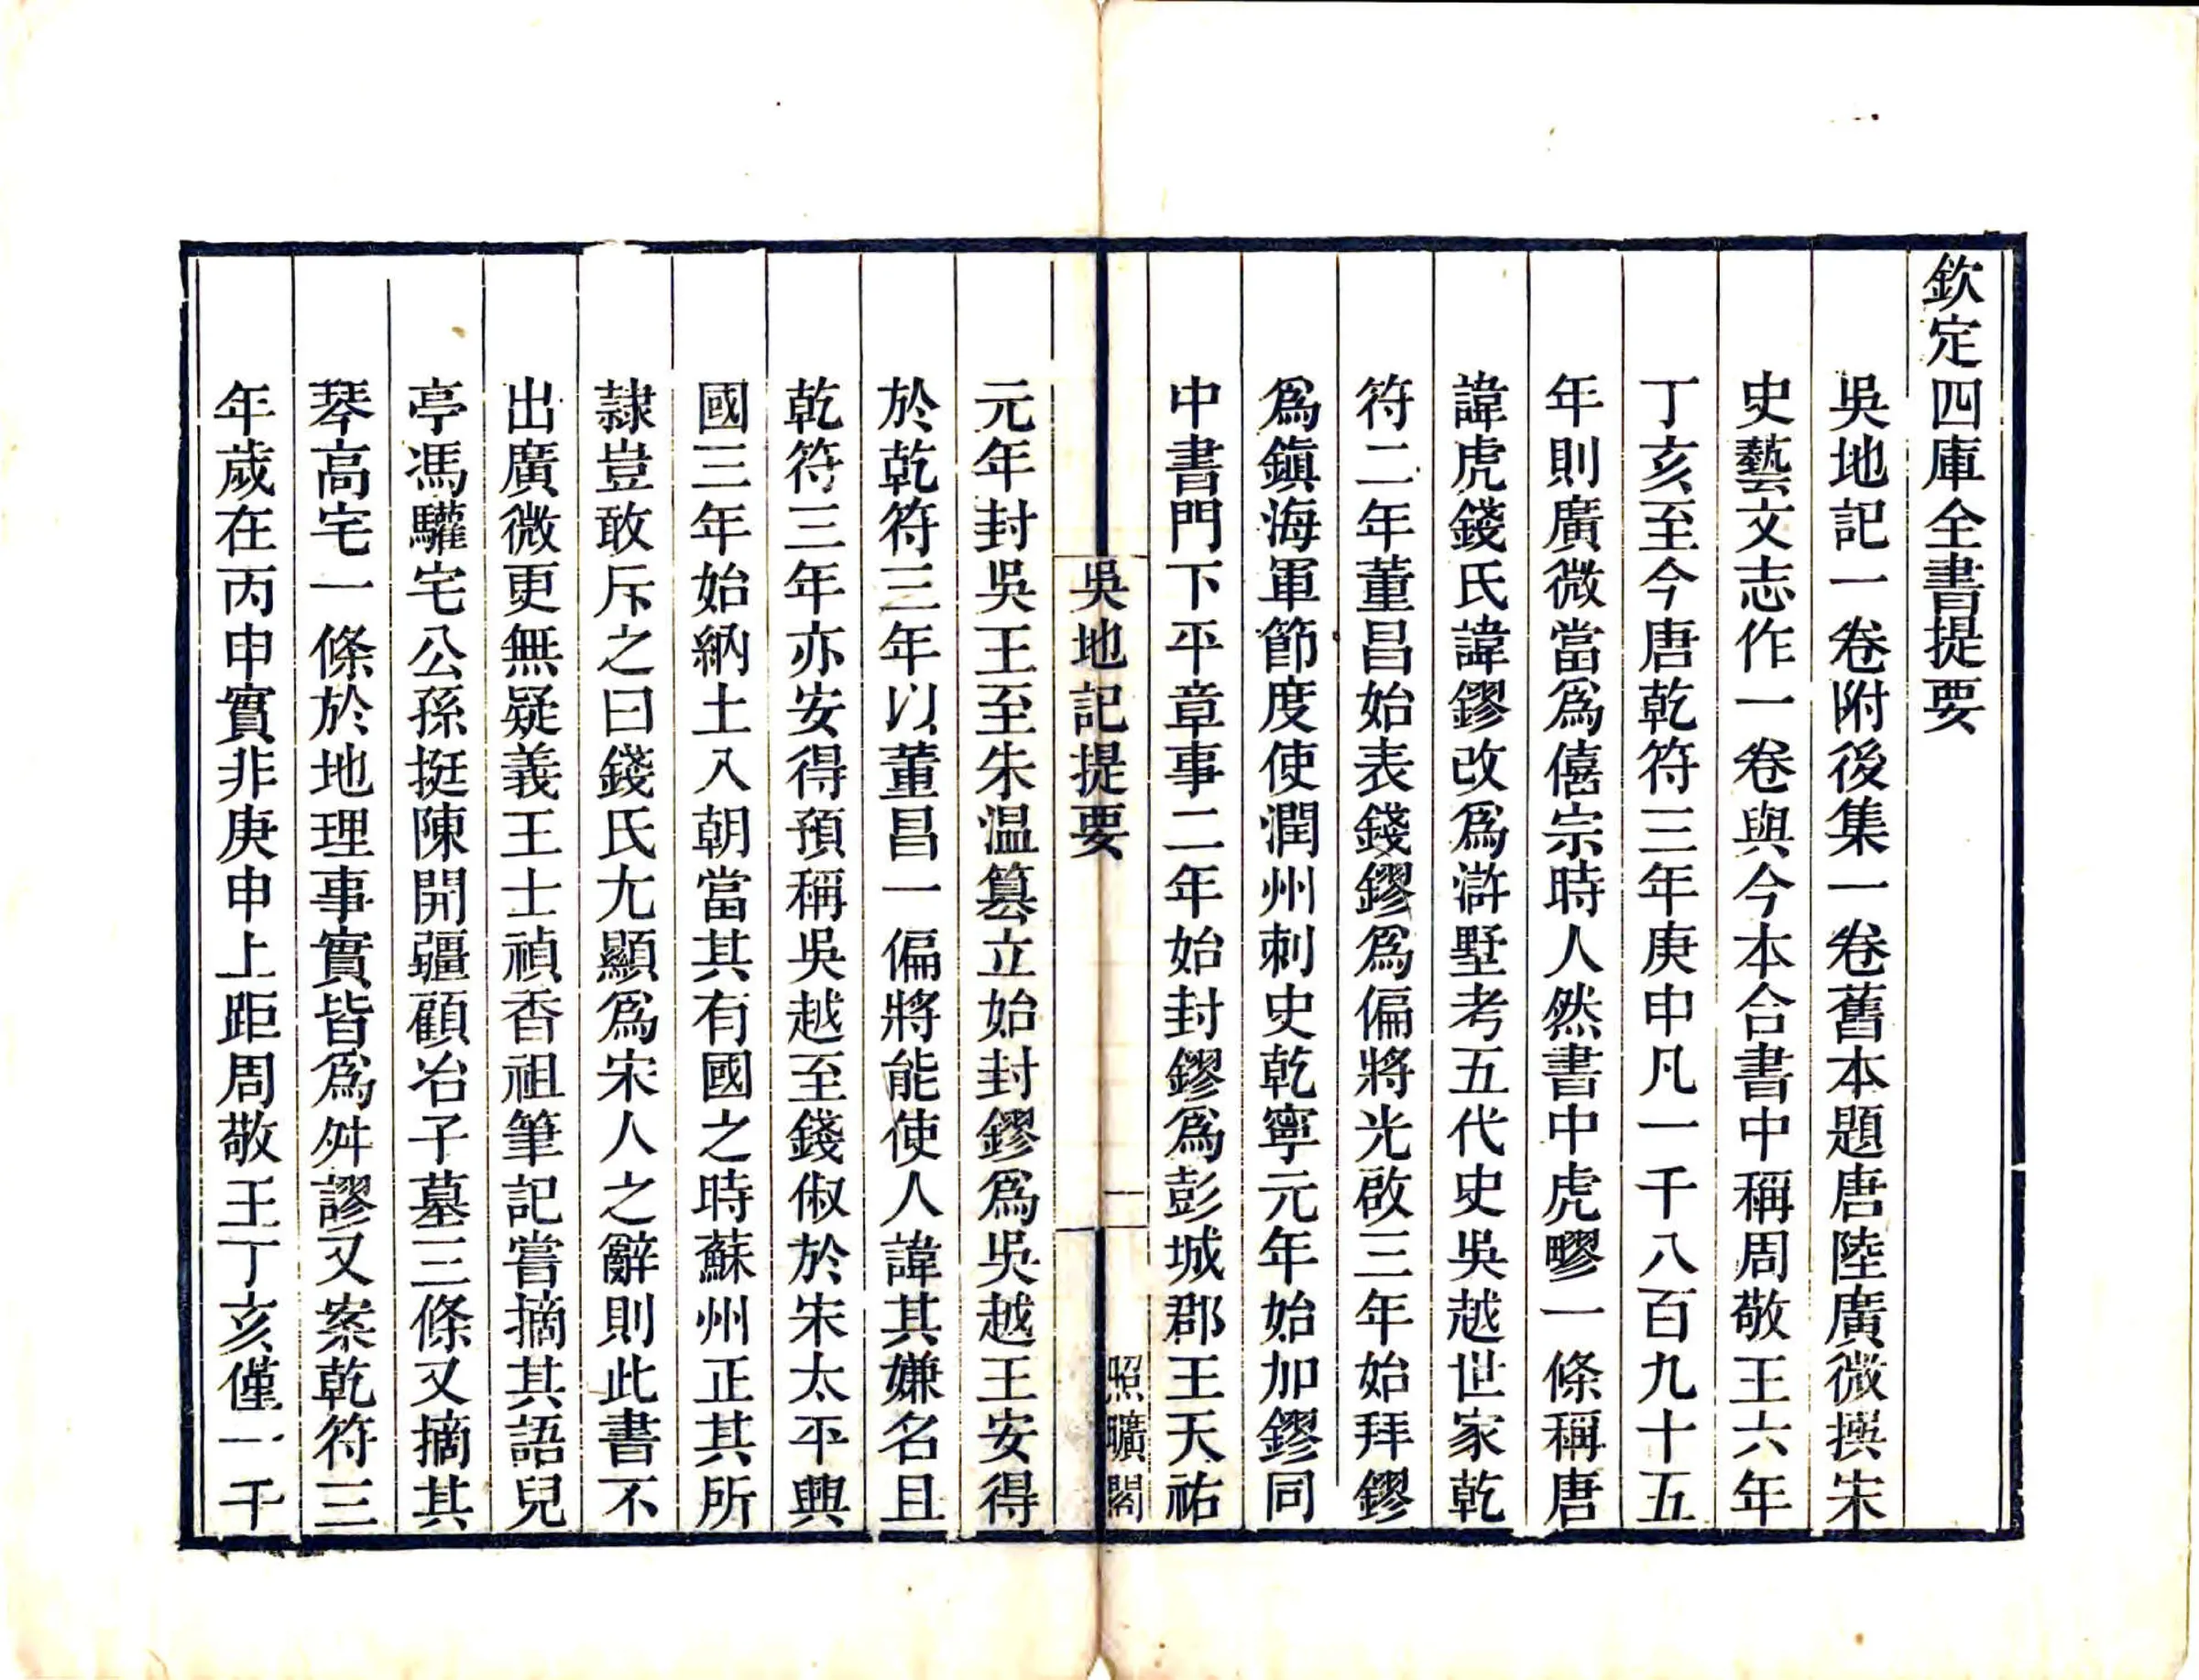 欽定四庫全書提要
吳地記一卷附後集一卷舊本題唐陸廣微撰宋
史藝文志作一卷與今本合書中稱周敬王六年
丁亥至今唐乾符三年庚申凡一千八百九十五
年則廣微當爲僖宗時人然書中虎疁一條稱唐
諱虎錢氏諱鏐改爲滸墅考五代史吳越世家乾
符二年董昌始表錢鏐爲偏將光啟三年始拜鏐
爲鎭海軍節度使潤州刺史乾寧元年始加鏐同
中書門下平章事二年始封鏐爲彭城郡王天祐
吳地記提要
一
照曠閣
元年封吳王至朱温簒立始封鏐爲吳越王安得
於乾符三年以董昌一偏將能使人諱其嫌名且
乾符三年亦安得預稱吳越至錢俶於宋太平興
國三年始納土入朝當其有國之時蘇州正其所
隷豈敢斥之曰錢氏尢顯爲宋人之辭則此書不
出廣微更無疑義王士禎香祖筆記嘗摘其語兒
亭馮驩宅公孫挺陳開疆顧冶子墓三條又摘其
琴高宅一條於地理事實皆爲舛謬又案乾符三
年歲在丙申實非庚申上距周敬王丁亥僅一千